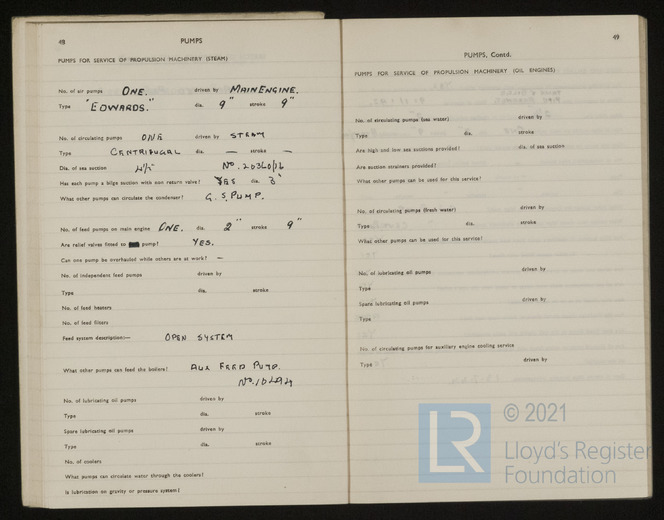 48
PUMPS
PUMPS FOR SERVICE OF PROPULSION MACHINERY (STEAM)
No. of air pumps ONE. driven by MAIN ENGINE.
Type "EDWARDS." dia. 9" stroke 9"
No. of circulating pumps ONE driven by STEAM
Type CENTRIFUGAL dia. — stroke —
Dia. of sea suction 4½" No. 20360/16
Has each pump a bilge suction with non return valve? YES dia. 3"
What other pumps can circulate the condenser? G.S. PUMP.
No. of feed pumps on main engine ONE. dia. 2" stroke 9"
Are relief valves fitted to pump? YES.
Can one pump be overhauled while others are at work? —
No. of independent feed pumps driven by
Type dia. stroke
No. of feed heaters
No. of feed filters
Feed system description:— OPEN SYSTEM
What other pumps can feed the boilers? AUX FEED PUMP.
No. of lubricating oil pumps driven by
Type dia. stroke
Spare lubricating oil pumps driven by
Type dia. stroke
No. of coolers
What pumps can circulate water through the coolers?
Is lubrication on gravity or pressure system?
49
PUMPS, Contd.
PUMPS FOR SERVICE OF PROPULSION MACHINERY (OIL ENGINES)
No. of circulating pumps (sea water) driven by
Type dia. stroke
Are high and low sea suctions provided? dia. of sea suction
Are suction strainers provided?
What other pumps can be used for this service?
No. of circulating pumps (fresh water) driven by
Type dia. stroke
What other pumps can be used for this service?
No. of lubricating oil pumps driven by
Type
Spare lubricating oil pumps driven by
Type
No. of circulating pumps for auxiliary engine cooling service
Type driven by
LR
© 2021
Lloyd's Register
Foundation